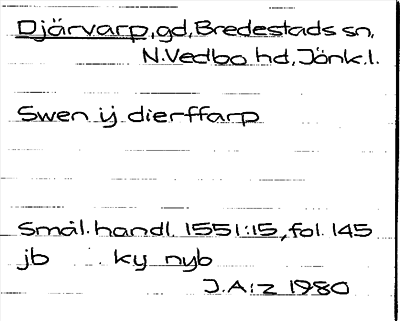 Djärvarp, gd, Bredestads sn,
N. Vedbo hd, Jönk. l.
Swen ij dierffarp
Smål. handl. 1551:15, fol. 145
jb ky nyb
J.A:z 1980